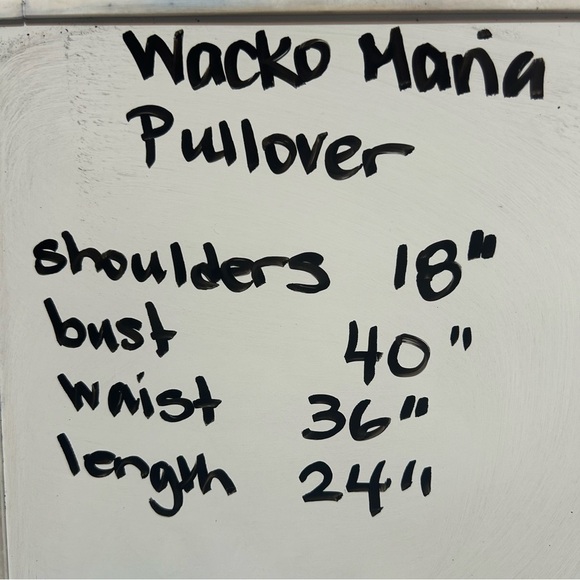 Wacko Maria
Pullover
shoulders 18"
bust 40"
waist 36"
length 24"